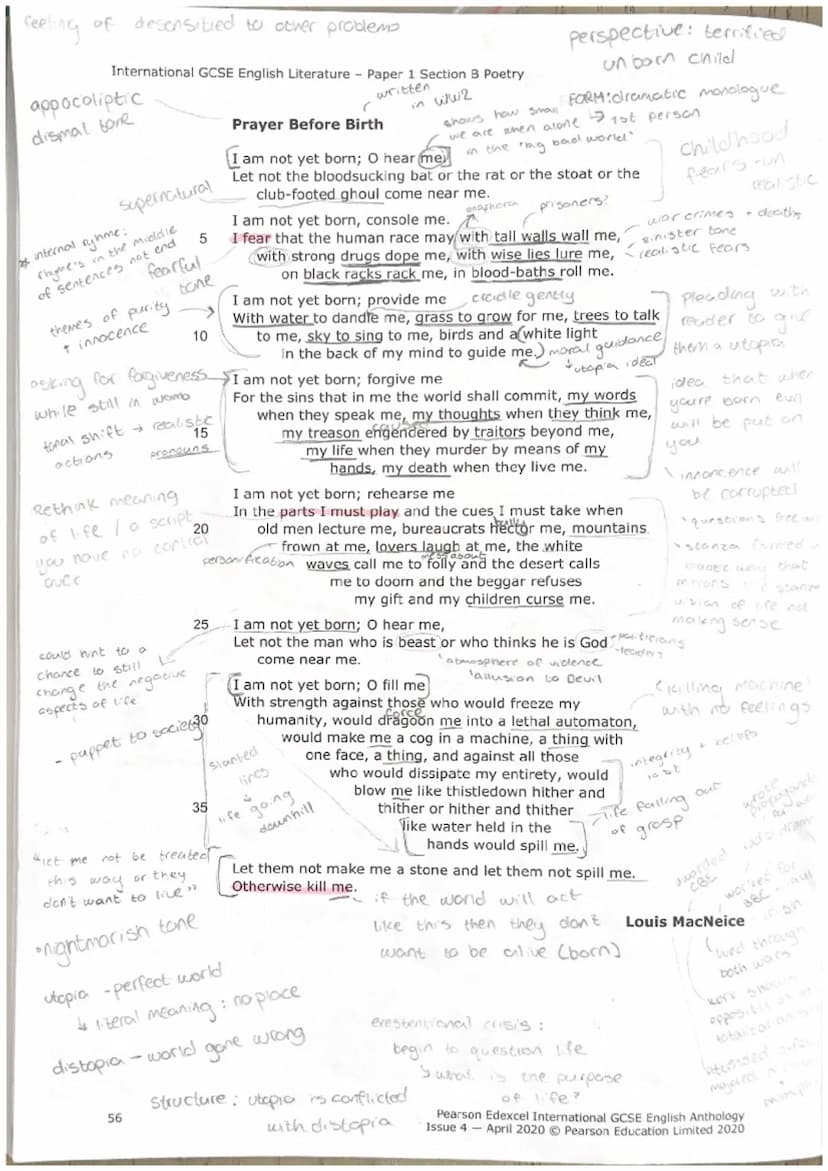 feeling of desensitied to other problems
perspective: terrified
unborn child
International GCSE English Literature – Paper 1 Section B Poetry
written
in WW2
appocoliptic
dismal tone
FORM: dramatic monologue
↳ 1st person
shows how small
we are when alone
in the "big bad world"
Prayer Before Birth
I am not yet born; O hear me.
Let not the bloodsucking bat or the rat or the stoat or the
club-footed ghoul come near me.
childhood
fears - un
realistic
supernatural
anaphora
prisoners?
I am not yet born, console me.
5 I fear that the human race may with tall walls wall me,
with strong drugs dope me, with wise lies lure me,
on black racks rack me, in blood-baths roll me.
war crimes + deaths
sinister tone
realistic fears
* internal ryhme:
rhyme's in the middle
of sentences not end
fearful
tone
themes of purity
+ innocence
I am not yet born; provide me
cradle gently
With water to dandle me, grass to grow for me, trees to talk
10 to me, sky to sing to me, birds and a white light
in the back of my mind to guide me.
moral guidance
↳ utopia ideal
pleading with
reader to give
them a utopia
asking for forgiveness
while still in womb
tonal shift → realistic
actions
pronouns
I am not yet born; forgive me
For the sins that in me the world shall commit, my words
when they speak me, my thoughts when they think me,
caused
15 my treason engendered by traitors beyond me,
my life when they murder by means of my
hands, my death when they live me.
idea that when
you're born evil
will be put on
you
innoncence will
be corrupted
Rethink meaning
of life / a script
you have no control
over
I am not yet born; rehearse me
In the parts I must play and the cues I must take when
bully
20 old men lecture me, bureaucrats hector me, mountains
frown at me, lovers laugh at me, the white
personification
mess about
waves call me to folly and the desert calls
me to doom and the beggar refuses
my gift and my children curse me.
questions free
stanza formed
way that
mirrors the
vision of life not
making sense
25 I am not yet born; O hear me,
Let not the man who is beast or who thinks he is God
come near me.
'atmosphere of violence
'allusion to Devil
could hint to a
chance to still
change the negative
aspects of life
- puppet to society
I am not yet born; O fill me
With strength against those who would freeze my
force
30 humanity, would dragoon me into a lethal automaton,
would make me a cog in a machine, a thing with
one face, a thing, and against all those
who would dissipate my entirety, would
blow me like thistledown hither and
35 thither or hither and thither
like water held in the
hands would spill me.
'killing machine'
with no feelings
integrity +
lost
life falling out
of grasp
slanted
lines
↓
life going
downhill
"let me not be treated
this way or they
don't want to live"
Let them not make me a stone and let them not spill me.
Otherwise kill me.
- if the world will act
like this then they don't
want to be alive (born)
Louis MacNeice
awarded
CBE
worked for
BBC
lived through
both wars
work shows
•nightmarish tone
utopia - perfect world
↳ literal meaning: no place
distopia - world gone wrong
erestentional crisis:
begin to question life
↳ what is the purpose
of life?
structure: utopia is conflicted
with distopia
56
Pearson Edexcel International GCSE English Anthology
Issue 4 — April 2020 © Pearson Education Limited 2020